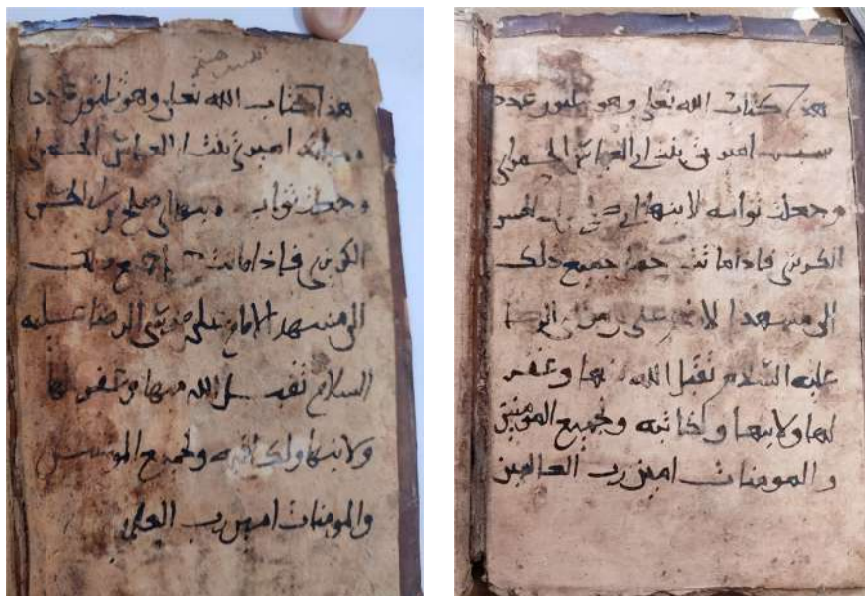 هذا كتاب الله تعلى وهو ثلثون عددا
اميرتى بنت ابى العباس الحسولى
وجعلت ثواب لابنها ابى صلح بن الحسن
الكرجى فاذا ماتت جمع ذلك
الى مشهد الامام على بن موسى الرضا عليه
السلام تقبل الله منها وغفر لها
ولابنها ولكاتبه ولجميع المومنين
والمومنات امين رب العلمين
هذا كتاب الله تعلى وهو ثلثون عددا
سبب اميرتى بنت ابى العباس الحسولى
وجعلت ثوابه لابنها ابى بن الحسن
الكرجى فاذا ماتت حمل جميع ذلك
الى مشهد الامام على بن موسى الرضا
عليه السلام تقبل الله منها وغفر
لها ولابنها ولكاتبه ولجميع المومنين
والمومنات امين رب العالمين